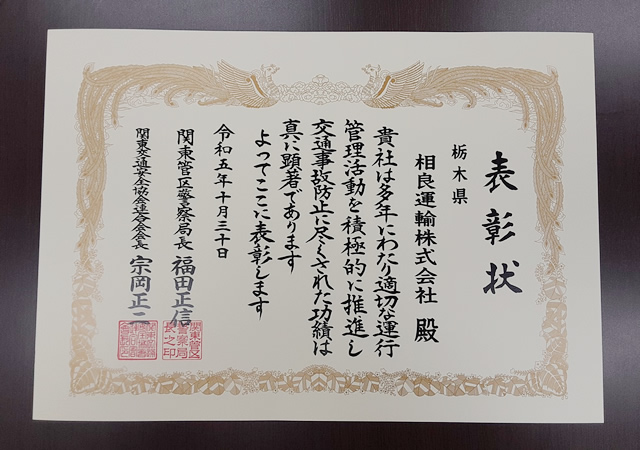 表彰状
栃木県
相良運輸株式会社 殿
貴社は多年にわたり適切な運行
管理活動を積極的に推進し
交通事故防止に尽くされた功績は
真に顕著であります
よってここに表彰します
令和五年十月三十日
関東管区警察局長 福田正信
関東管区警察局長之印
関東交通安全協会連合会会長 宗岡正二